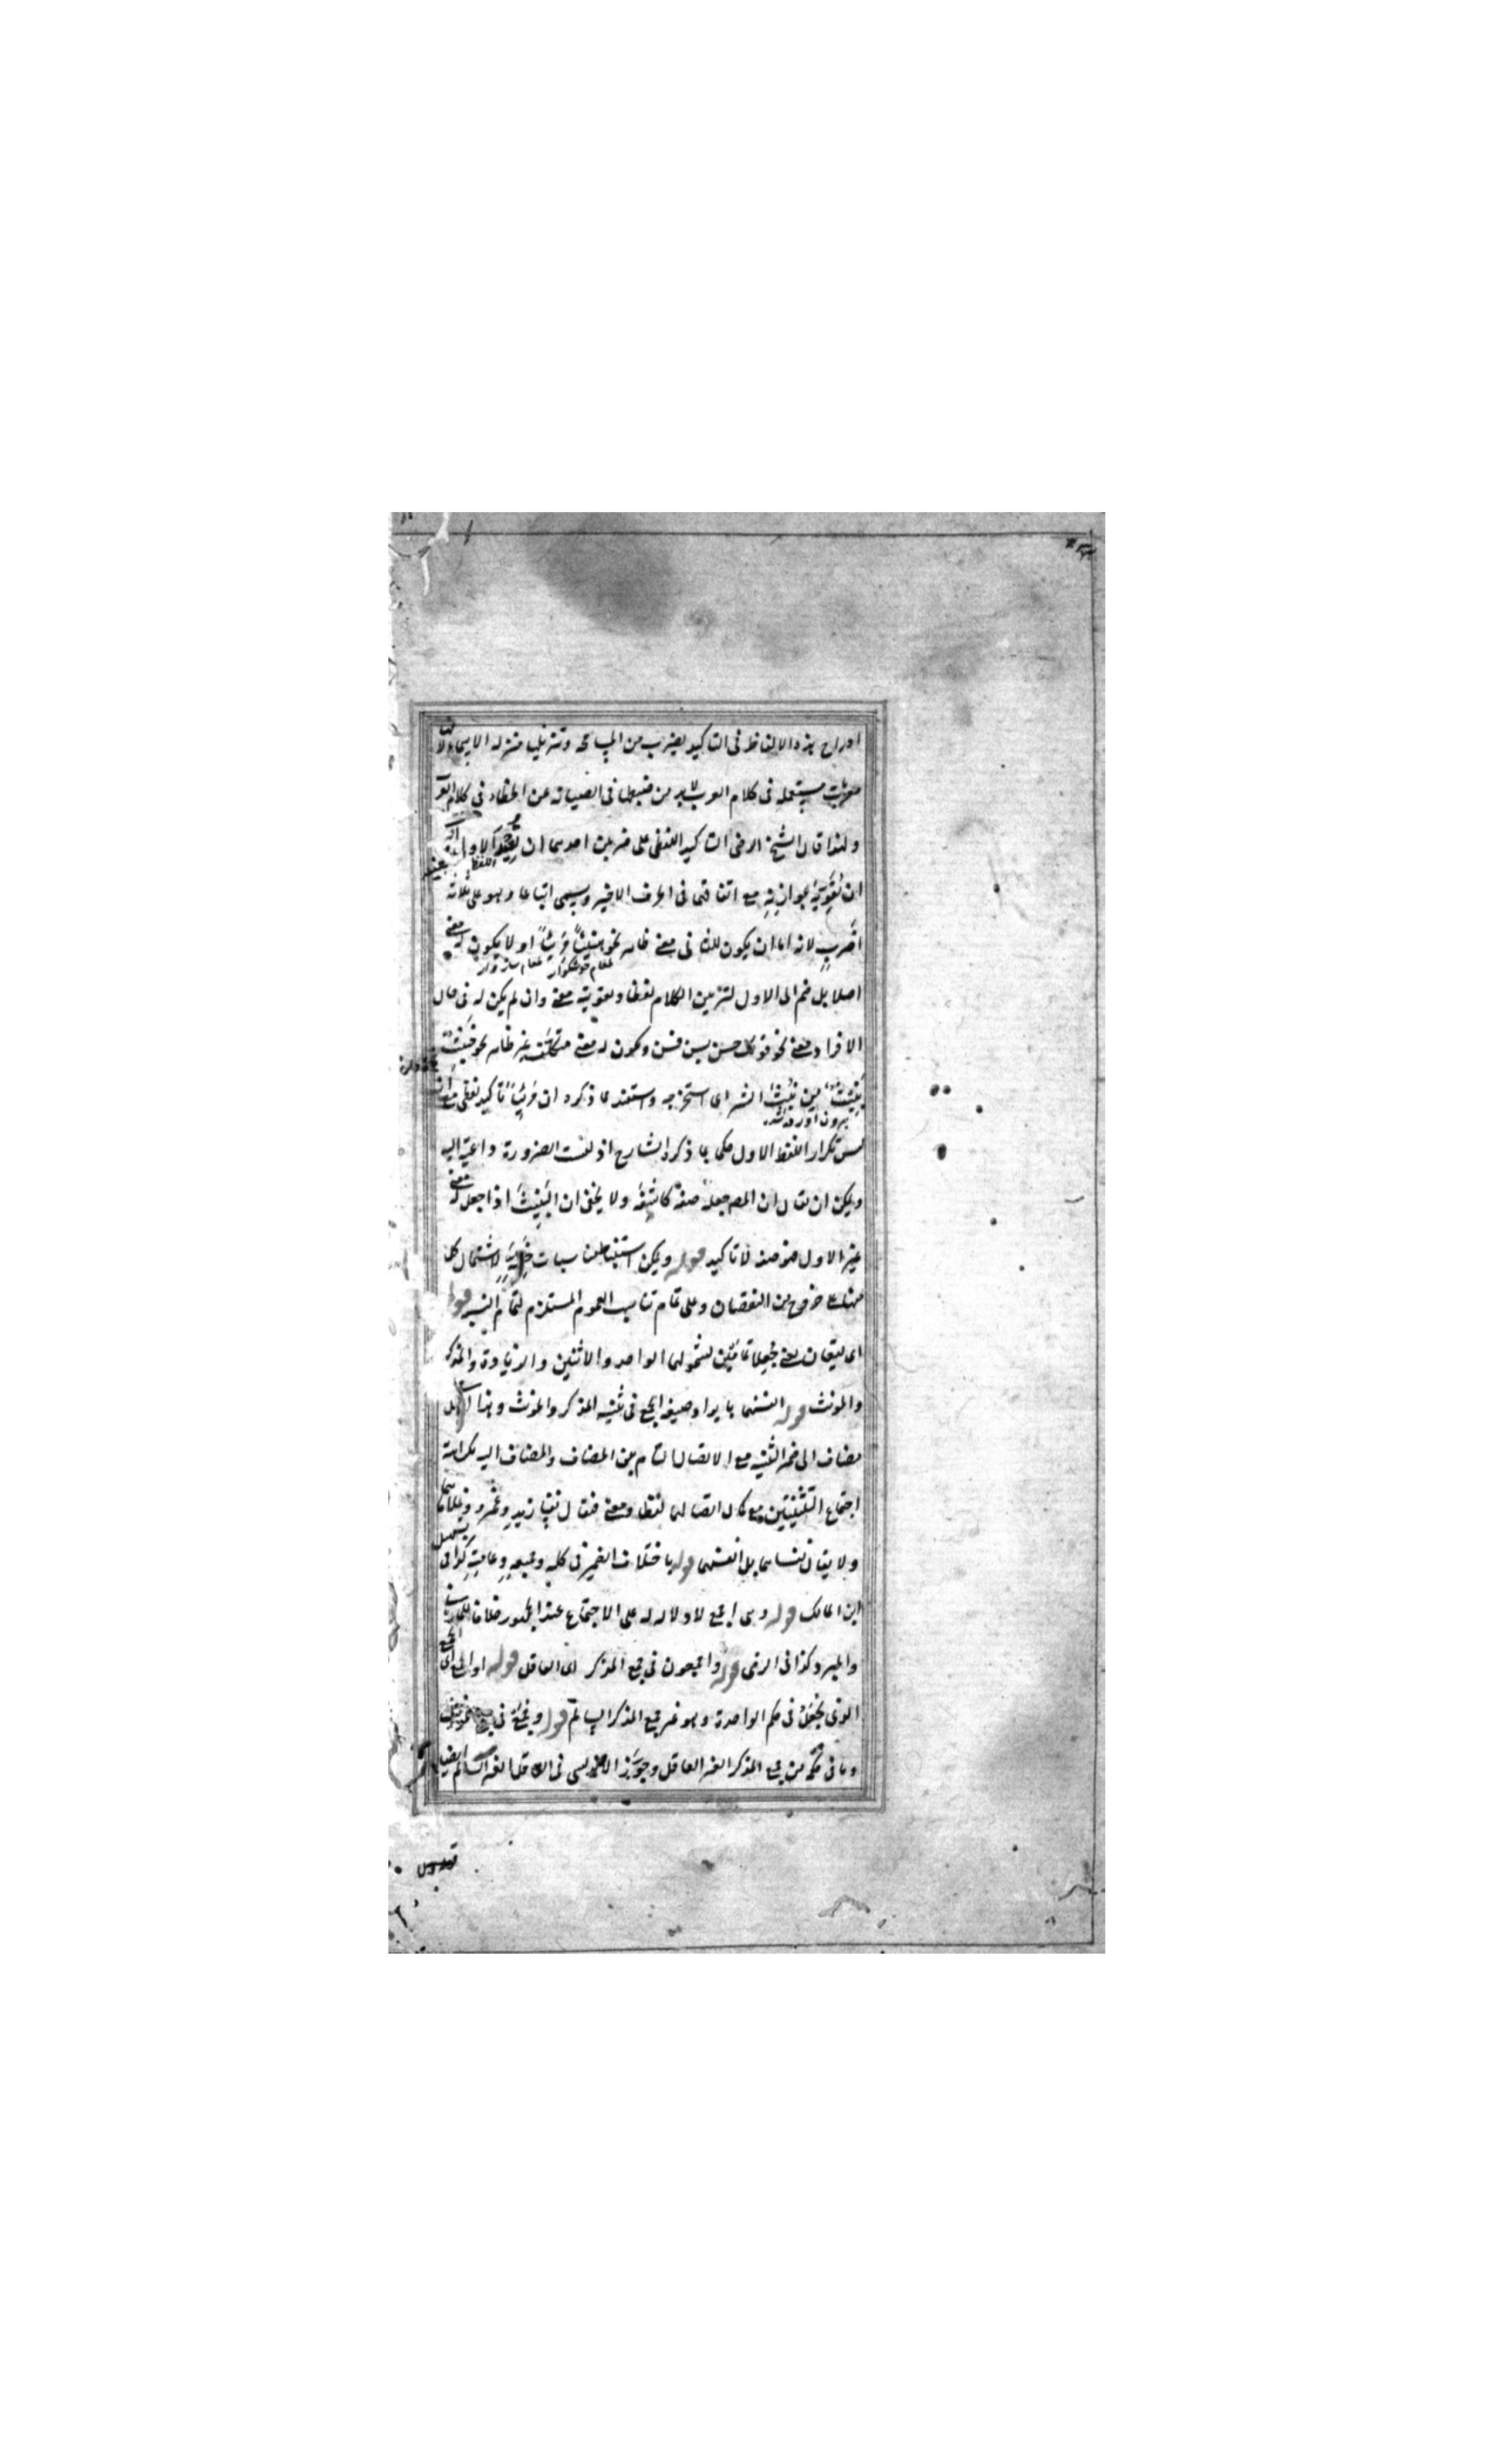 ادراج هذه الالفاظ فى التاكيد بضرب من المسامحة وتنزيلها منزلة الاسماء لانها
معربات مستعمله فى كلام العرب لابد من ضبطها فى الصيانة عن الخطاء فى كلام العرب
ولهذا قال الشيخ الرضى التاكيد اللفظى على ضربين احدهما ان تعيد الاول
ان تقويه بموازنه مع اتفاقهما فى الحرف الاخير ويسمى اتباعا وهو على ثلاثة
اضرب لانه اما ان يكون للثانى معنى ظاهر نحو هنيئا مريئا او لا يكون له معنى
طعام خوشكوار طعام سازوار
اصلا بل ضم الى الاول لتزيين الكلام لفظا وتقويته معنى وان لم يكن له فى حال
الافراد معنى نحو قولك حسن بسن قسن ويكون له معنى متكلف غير ظاهر نحو خبيث
نبيث من نبث الشر اى استخرجه واستفيد مما ذكره ان مريئا تاكيد لفظى مع انه
بيرون اوردن
ليس تكرار اللفظ الاول حكما بما ذكره الشارح اذ ليست الضرورة داعية اليه
ويمكن ان يقال ان المص جعله صفة كاشفة ولا يخفى ان النبيث اذا جعل له معنى
غير الاول فهو صفة لا تاكيد قوله ويمكن استنباط مناسبات خفية لاشتمال كل
منها على خروج من النقصان وعلى تمام تناسب العموم المستلزم لتمام النسبة قوله
اى يقعان يعنى جعلا عامين لشمولهما الواحد والاثنين والزيادة والمذكر
والمونث قوله انفسهما بايراد صيغة الجمع فى تثنية المذكر والمونث وهذا
مضاف الى ضمير التثنيه مع الاتصال التام بين المضاف والمضاف اليه لكراهة
اجتماع التثنيتين مع كمال اتصالهما لفظا ومعنى فيقال نفسا زيد وعمرو وغلاماهما
ولا يقال نفساهما بل انفسهما قوله باختلاف الضمير فى كله وجميعه وعامته كذا فى تسهيل
ابن المالك قوله وهى اجمع لا دلالة له على الاجتماع عند الجمهور خلافا للمازنى
والمبرد كذا فى الرضى قوله واجمعون فى جمع المذكر اى العاقل قوله او الجمع اى الجمع
الذى يجعل فى حكم الواحدة وهو غير جمع المذكر السالم قوله وجمع فى جمع المونث
وما فى حكمه من جمع المذكر الغير العاقل وجوز الاندلسى فى العاقل الغير السالم ايضا